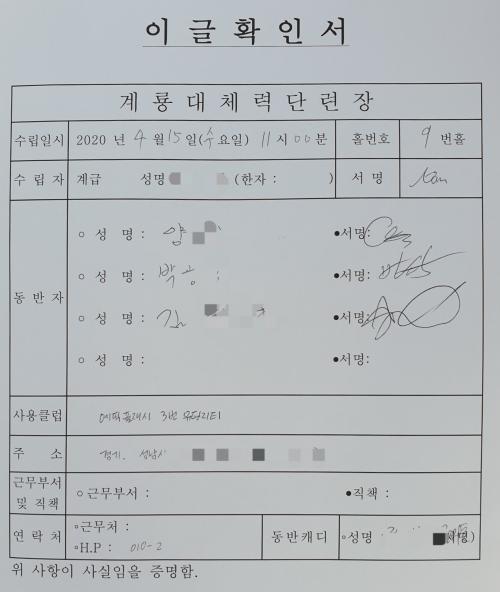 이 글 확 인 서
계 룡 대 체 력 단 련 장
수립일시 2020 년 4 월 15 일(수요일) 11 시 00 분 홀번호 9 번홀
수 립 자 계급 성명 (한자 : ) 서 명
동 반 자
○ 성 명 : 양 ●서명:
○ 성 명 : 박 공 ●서명:
○ 성 명 : 김 ●서명:
○ 성 명 : ●서명:
사용클럽 에픽플래시 3번 유틸리티
주 소 경기. 성남시
근무부서 및 직책 ○근무부서 : ●직책 :
연 락 처 ◦근무처 : 동반캐디 ◦성명
◦H.P : 010-2
위 사항이 사실임을 증명함.